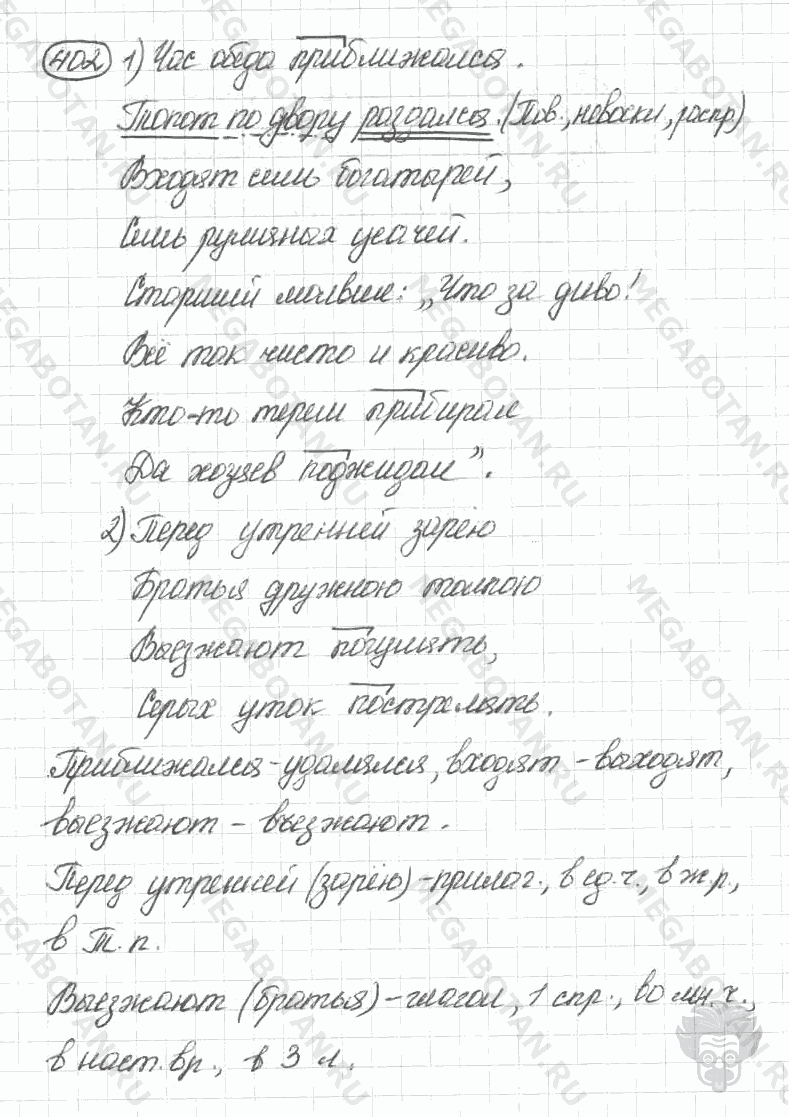 402 1) Час обеда приближался.
Топот по двору раздался. (Пов., невоскл, распр.)
Входят семь богатырей,
Семь румяных усачей.
Старший молвил: „Что за диво!
Всё так чисто и красиво.
Кто-то терем прибирал
Да хозяев поджидал”.
2) Перед утренней зарёю
Братья дружною толпою
Выезжают погулять,
Серых уток пострелять.
Приближался - удалялся, входят - выходят,
выезжают - въезжают.
Перед утренней (зарёю) - прилаг., в ед.ч., в ж.р.,
в Т.п.
Выезжают (братья) - глагол, 1 спр., во мн.ч.,
в наст.вр., в 3 л.
MEGABOTAN.RU